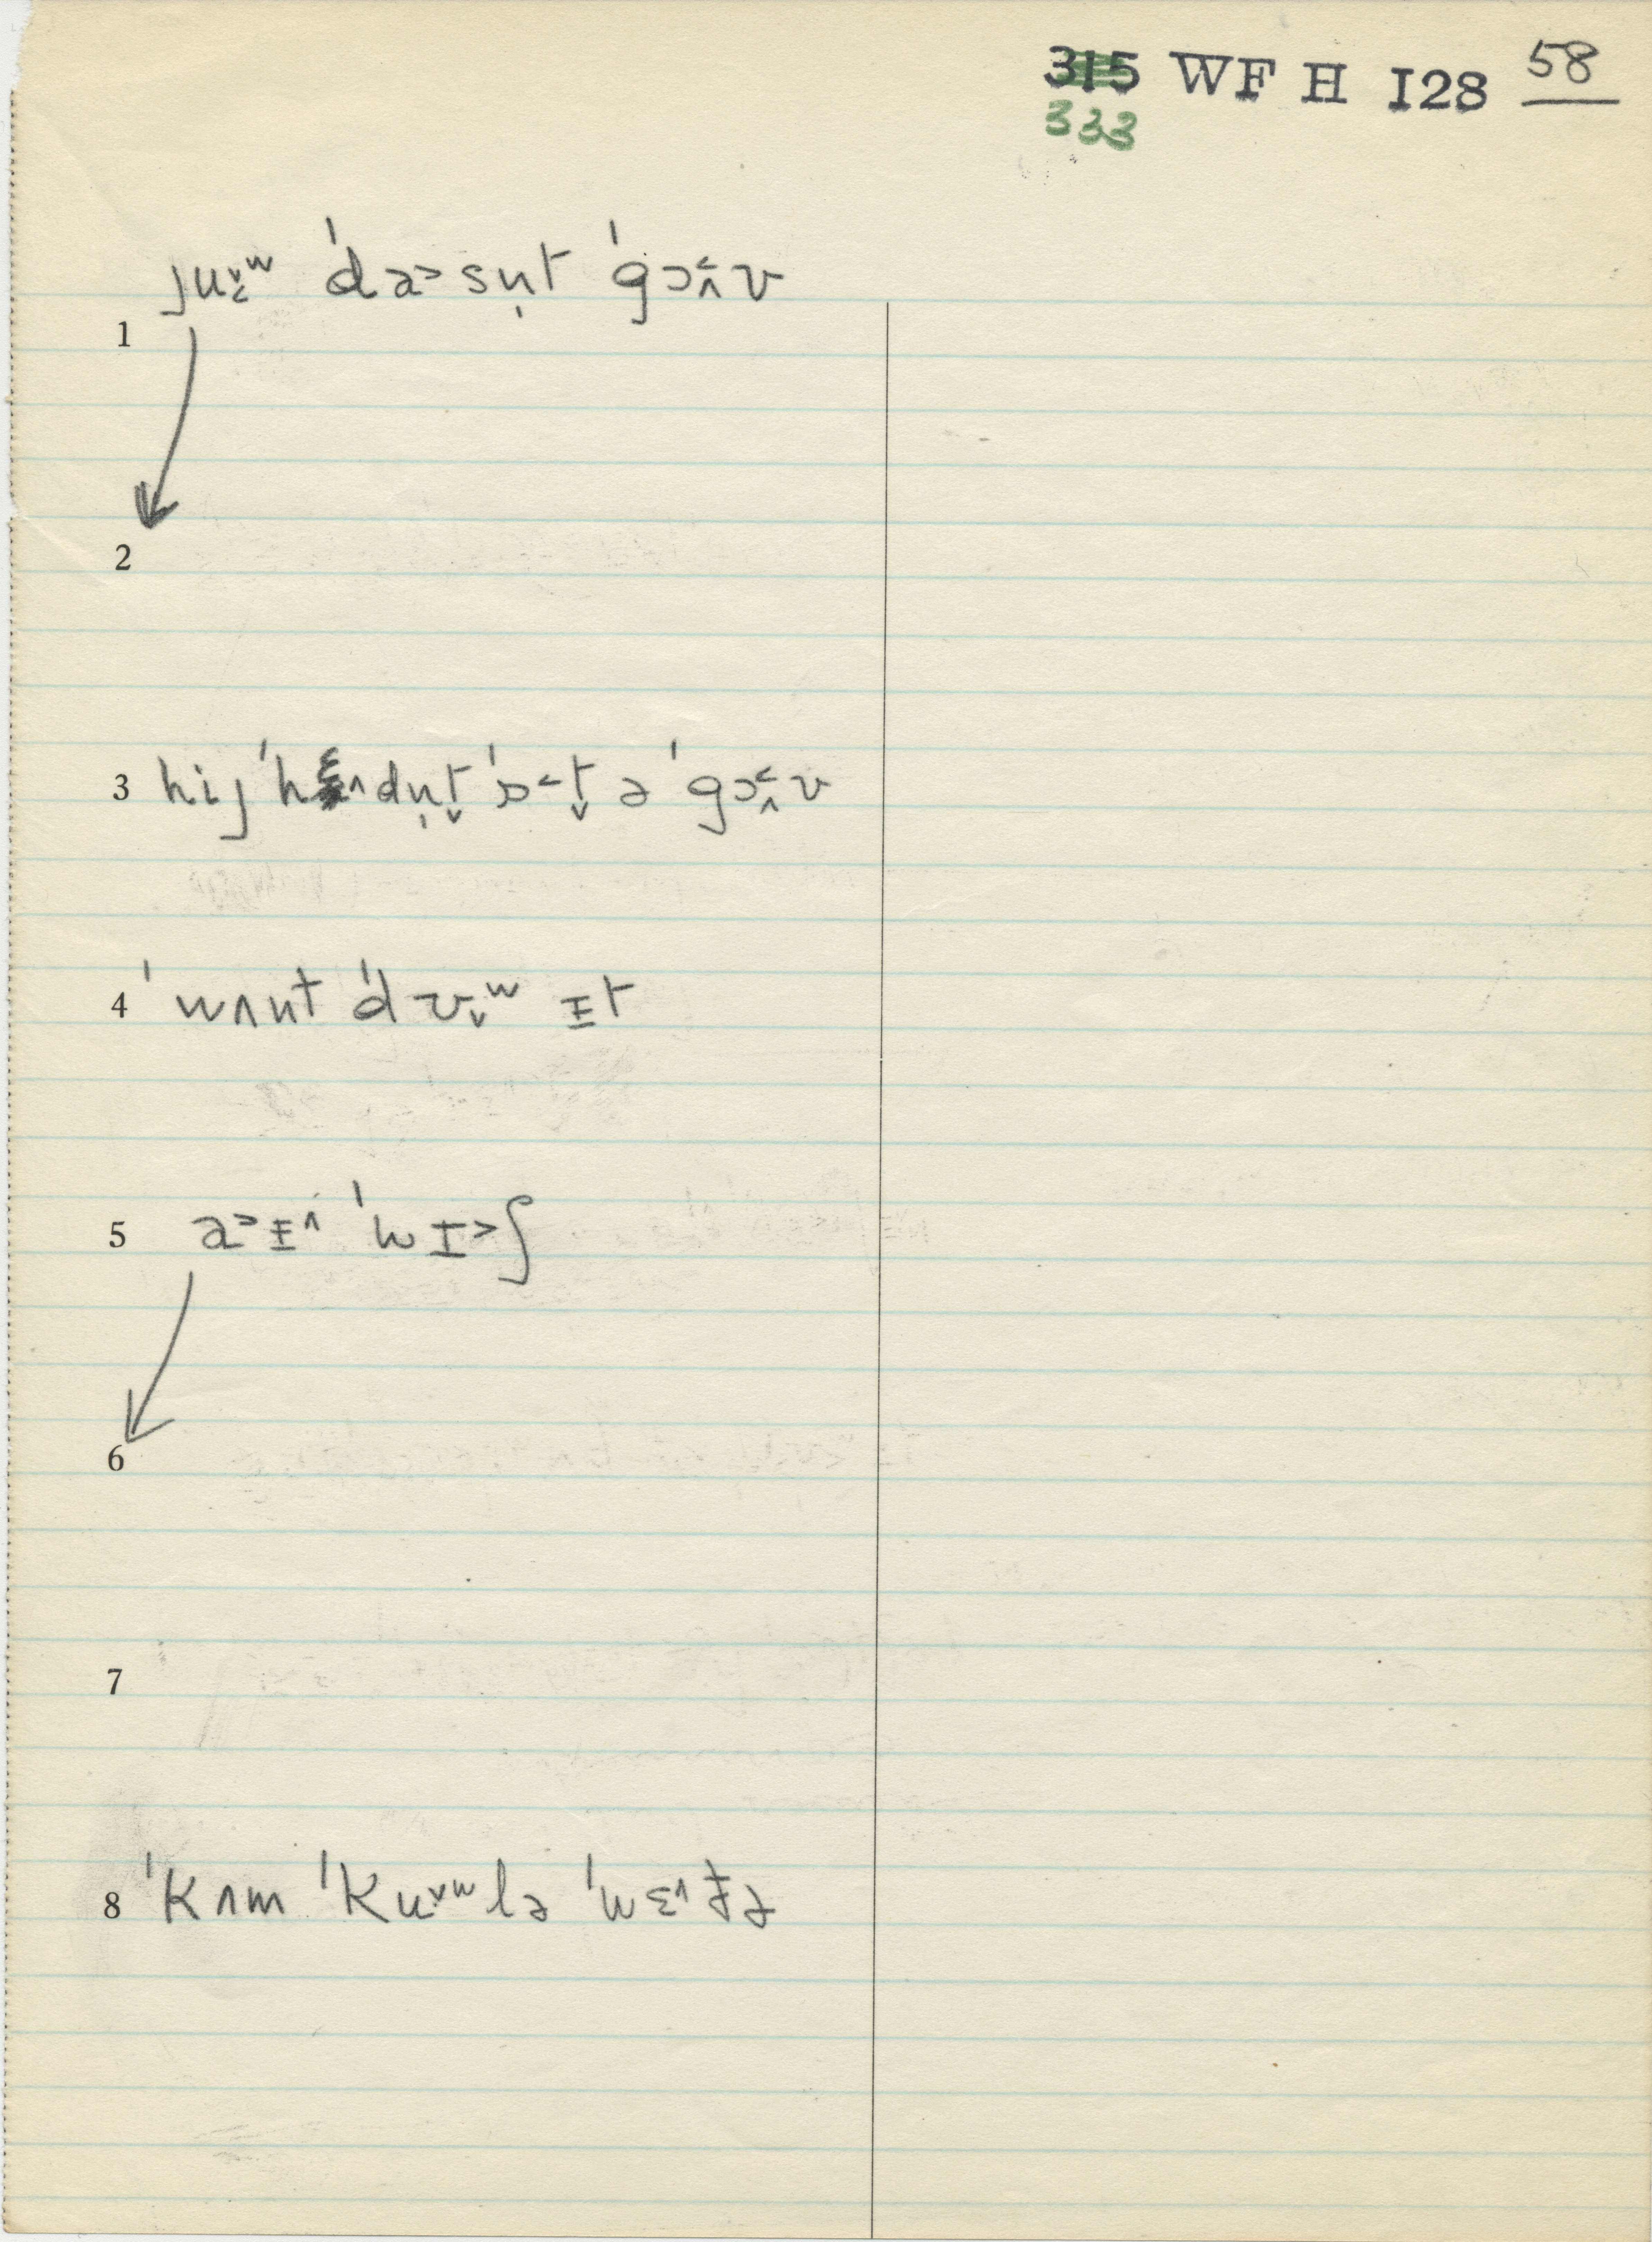 315 WF H I28 58
333
ju˯˂ʷ ˈda˃sn̩t ˈgɔ˂˄ʊ
1
2
3 hij ˈhɛ˄dn̩t̬ ˈɒ˂t̬ ə ˈgɔ˂˄ʊ
4 ˈwʌnt ˈdʊ˯ʷ ɪt
5 a˃ɪ˄ ˈwɪ˃ʃ
6
7
8 ˈkʌm ˈku˅ʷlə ˈwɛ˄ðə